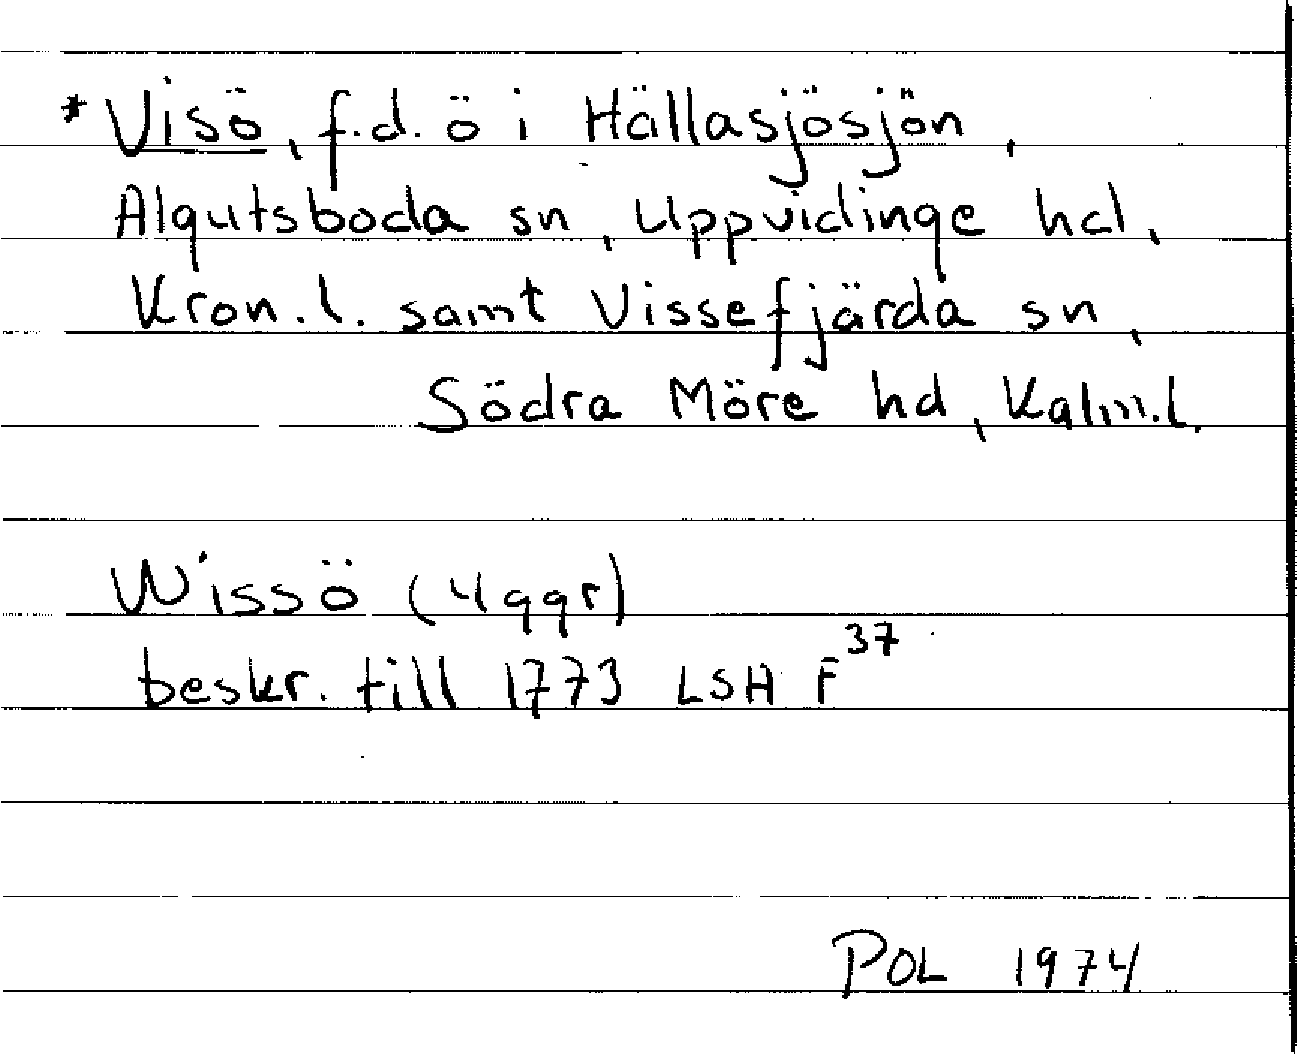 *Visö, f.d. ö i Hällasjösjön,
Algutsboda sn, Uppvidinge hd,
Kron.l. samt Vissefjärda sn,
Södra Möre hd, Kalm.l.
Wissö (4 ggr)
beskr. till 1773 LSH F 37
POL 1974